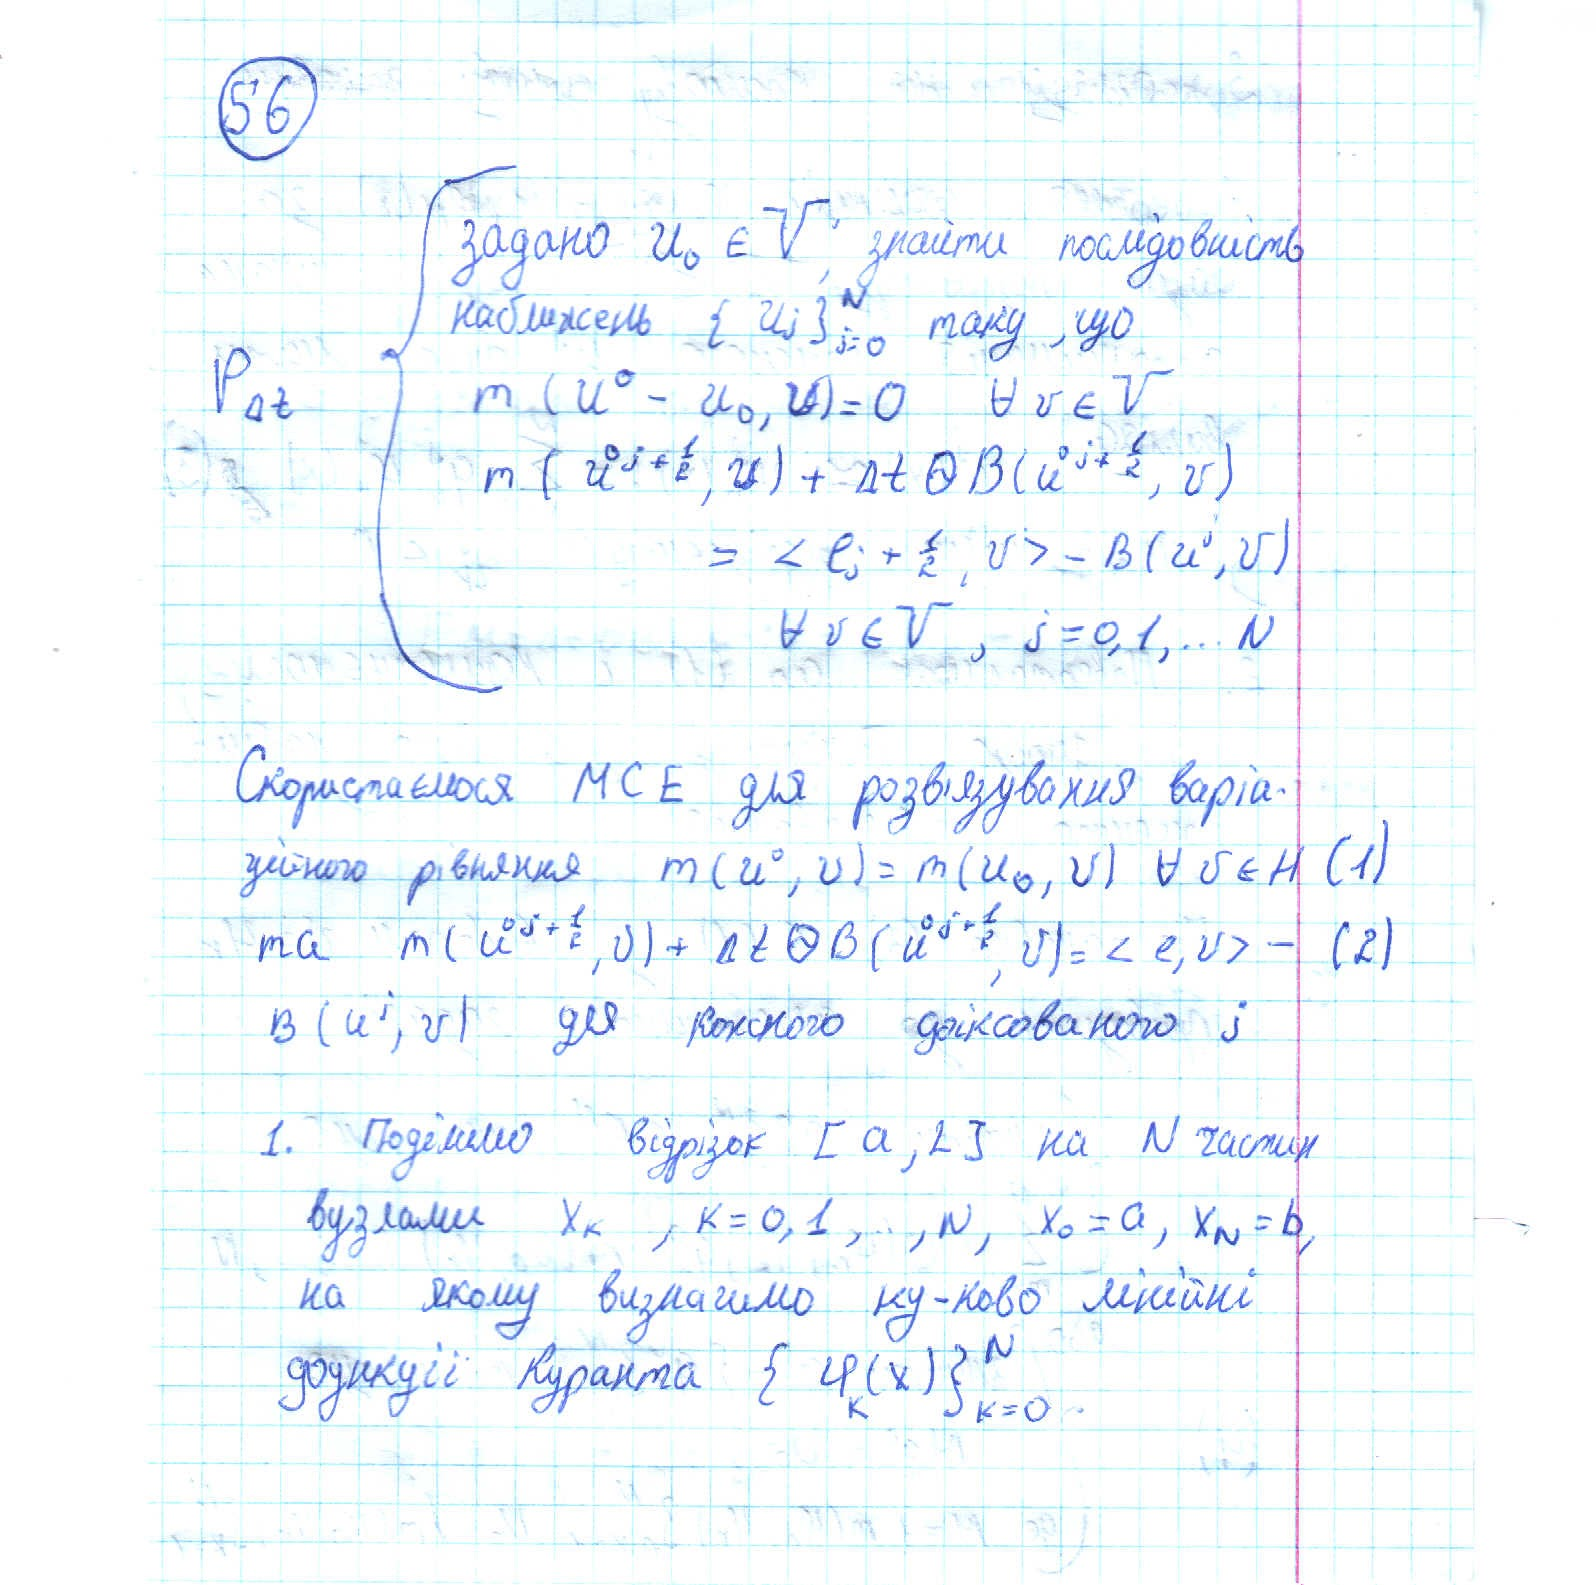 56
задано u₀ ∈ V, знайти послідовність
наближень { uⱼ }ᴺⱼ₌₀ таку, що
P_Δt
m (u⁰ - u₀, v) = 0 ∀ v ∈ V
m ( u̇^{j+1/2}, v) + Δt Θ B( u̇^{j+1/2}, v)
= < l_{j+1/2}, v > - B ( u^j, v)
∀ v ∈ V , j = 0,1,... N
Скористаємося МСЕ для розв'язування варіа-
ційного рівняння m ( u⁰, v) = m ( u₀, v) ∀ v ∈ H (1)
та m ( u̇^{j+1/2}, v) + Δt Θ B ( u̇^{j+1/2}, v) = < l, v > - (2)
B ( u^j, v) для кожного фіксованого j
1. Поділимо відрізок [ a , L ] на N частин
вузлами x_k , k = 0,1, .., N, x₀ = a, x_N = b,
на якому визначимо ку-ково лінійні
функції Куранта { φ_k (x) }ᴺ_{k=0} .